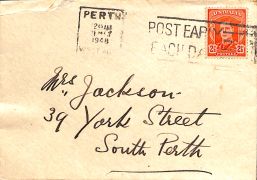 PERTH
1948
POST EAR
EACH DA
AUSTRALIA
2½
Mrs Jackson
39 York Street
South Perth